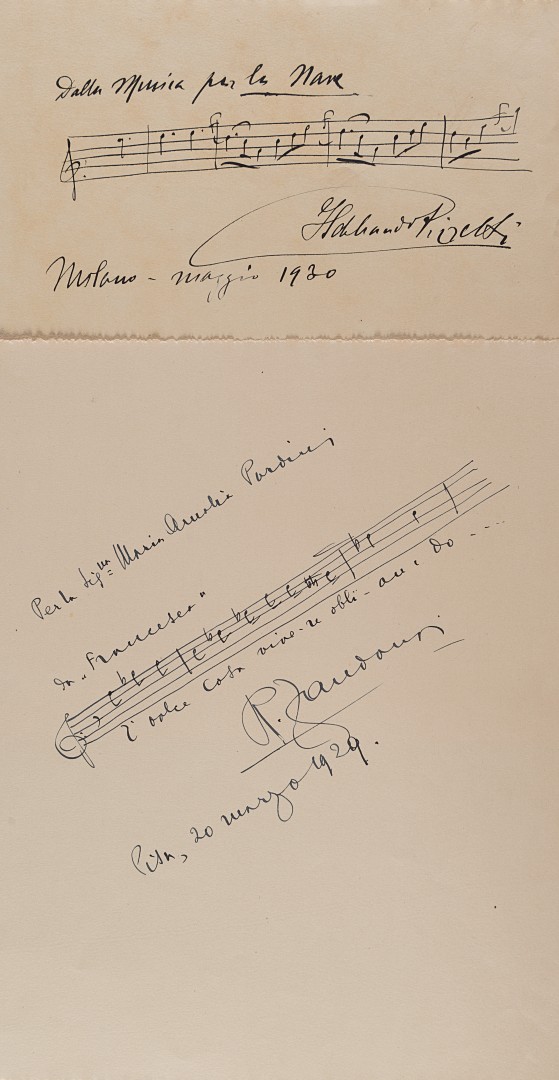 Dalla Musica per la Nave
Ildebrando Pizzetti
Milano - maggio 1930
Per la Sig.na Maria Amelia Pardini
da "Francesca"
È dolce cosa vive-re obli-an-do ----
R. Zandonai
Pisa, 20 marzo 1929.